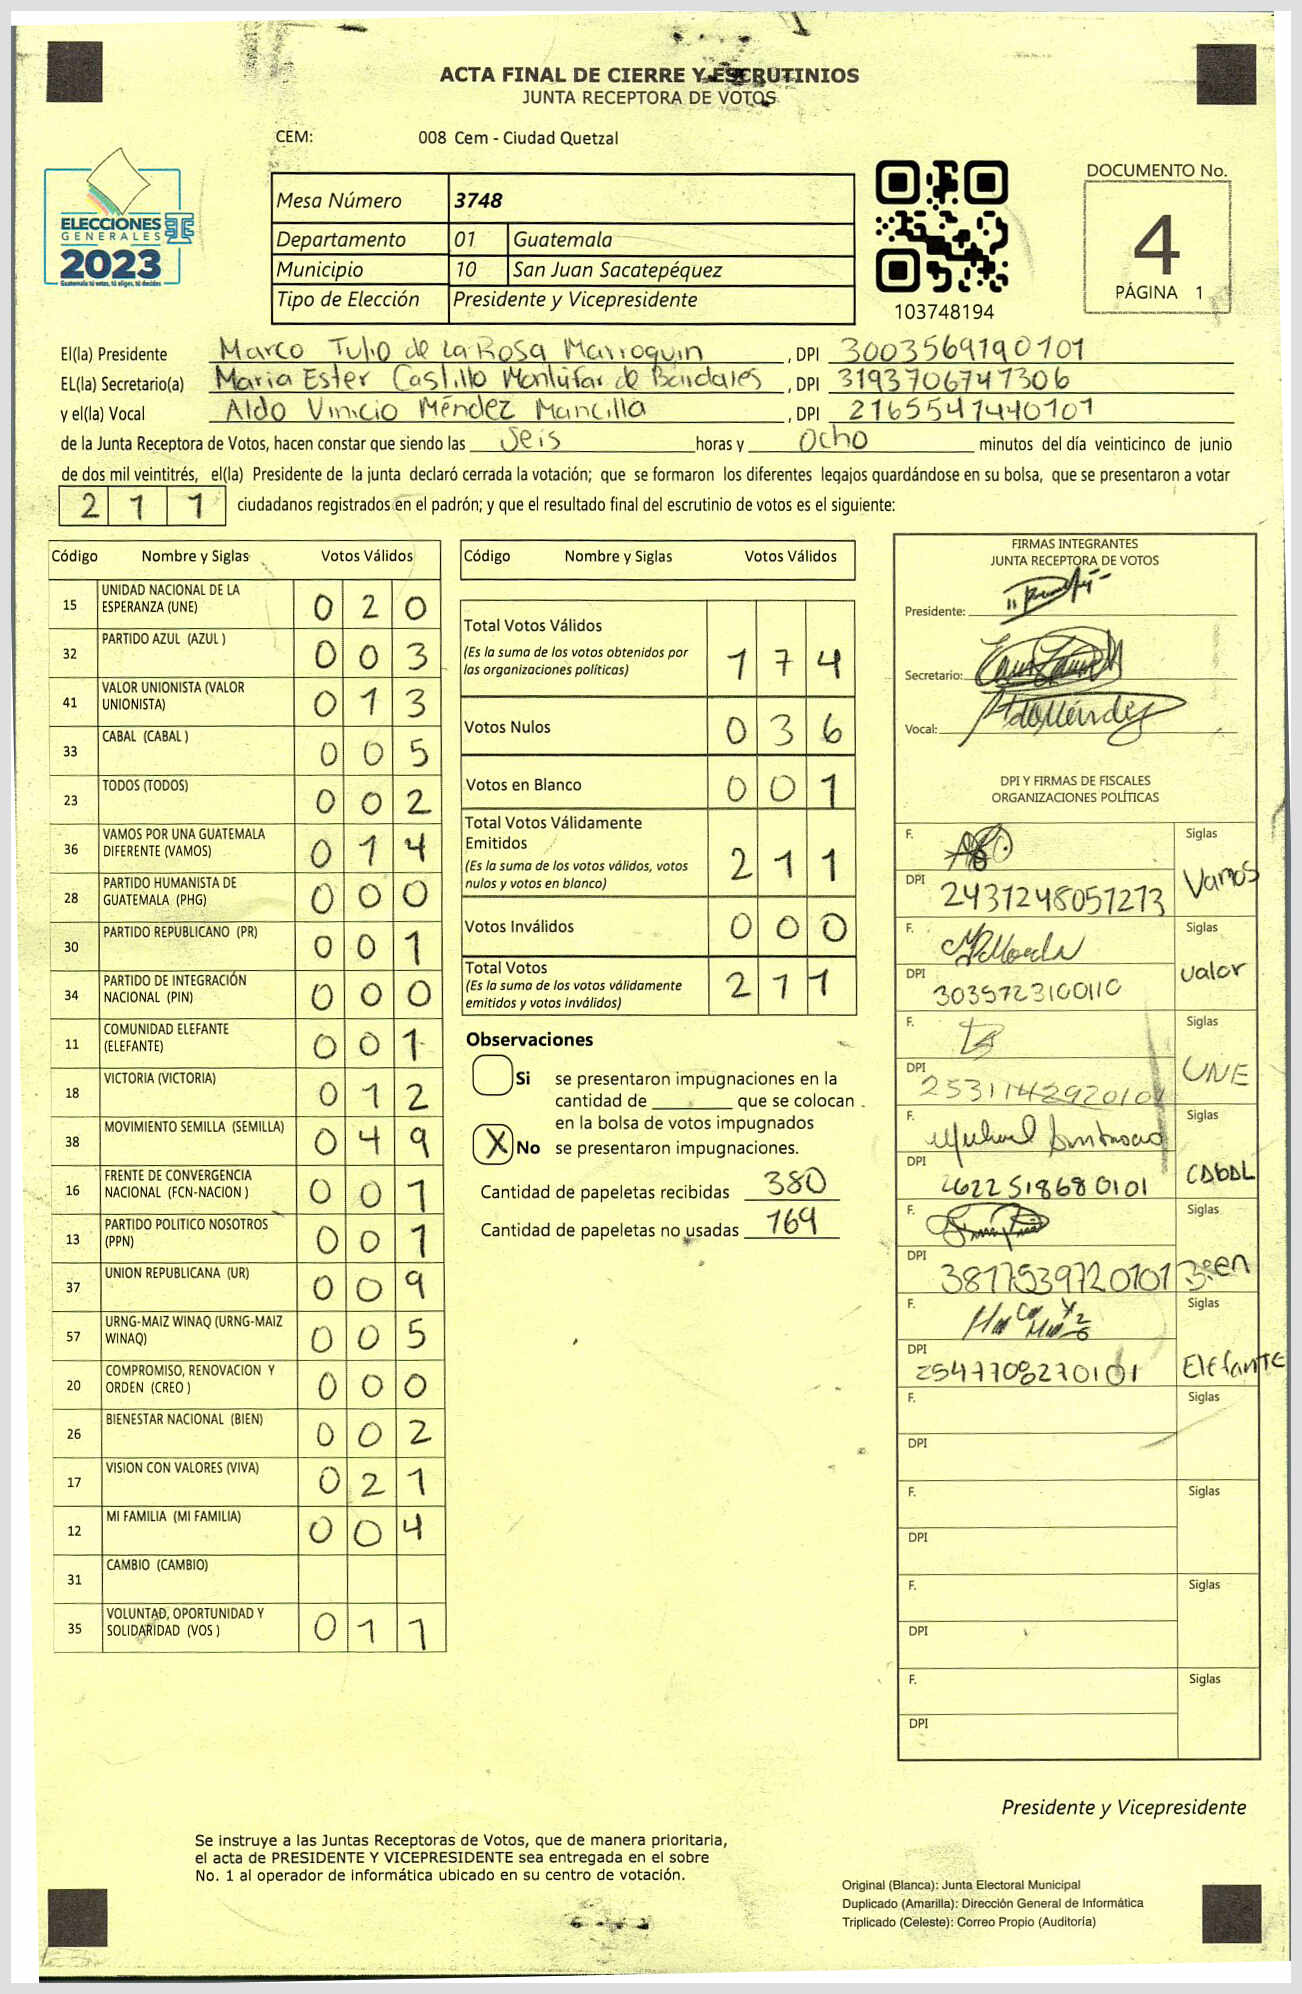 ACTA FINAL DE CIERRE Y ESCRUTINIOS
JUNTA RECEPTORA DE VOTOS
CEM: 008 Cem - Ciudad Quetzal
ELECCIONES
GENERALES
2023
Guatemala tú votas, tú eliges, tú decides
Mesa Número 3748
Departamento 01 Guatemala
Municipio 10 San Juan Sacatepéquez
Tipo de Elección Presidente y Vicepresidente
103748194
DOCUMENTO No.
4
PÁGINA 1
El(la) Presidente Marco Tulio de La Rosa Marroquin, DPI 3003569190101
EL(la) Secretario(a) Maria Ester Castillo Montúfar de, DPI 3193706747306
y el(la) Vocal Aldo Vinicio Méndez Mancilla, DPI 2165541440101
de la Junta Receptora de Votos, hacen constar que siendo las Seis horas y Ocho minutos del día veinticinco de junio
de dos mil veintitrés, el(la) Presidente de la junta declaró cerrada la votación; que se formaron los diferentes legajos guardándose en su bolsa, que se presentaron a votar
211 ciudadanos registrados en el padrón; y que el resultado final del escrutinio de votos es el siguiente:
Código Nombre y Siglas Votos Válidos
15 UNIDAD NACIONAL DE LA ESPERANZA (UNE) 020
32 PARTIDO AZUL (AZUL ) 003
41 VALOR UNIONISTA (VALOR UNIONISTA) 013
33 CABAL (CABAL ) 005
23 TODOS (TODOS) 002
36 VAMOS POR UNA GUATEMALA DIFERENTE (VAMOS) 014
28 PARTIDO HUMANISTA DE GUATEMALA (PHG) 000
30 PARTIDO REPUBLICANO (PR) 001
34 PARTIDO DE INTEGRACIÓN NACIONAL (PIN) 000
11 COMUNIDAD ELEFANTE (ELEFANTE) 001
18 VICTORIA (VICTORIA) 012
38 MOVIMIENTO SEMILLA (SEMILLA) 049
16 FRENTE DE CONVERGENCIA NACIONAL (FCN-NACION ) 001
13 PARTIDO POLITICO NOSOTROS (PPN) 001
37 UNION REPUBLICANA (UR) 009
57 URNG-MAIZ WINAQ (URNG-MAIZ WINAQ) 005
20 COMPROMISO, RENOVACION Y ORDEN (CREO ) 000
26 BIENESTAR NACIONAL (BIEN) 002
17 VISION CON VALORES (VIVA) 021
12 MI FAMILIA (MI FAMILIA) 004
31 CAMBIO (CAMBIO)
35 VOLUNTAD, OPORTUNIDAD Y SOLIDARIDAD (VOS ) 011
Código Nombre y Siglas Votos Válidos
Total Votos Válidos 174
(Es la suma de los votos obtenidos por
las organizaciones políticas)
Votos Nulos 036
Votos en Blanco 001
Total Votos Válidamente
Emitidos 211
(Es la suma de los votos válidos, votos
nulos y votos en blanco)
Votos Inválidos 000
Total Votos 211
(Es la suma de los votos válidamente
emitidos y votos inválidos)
Observaciones
Si se presentaron impugnaciones en la
cantidad de ________ que se colocan
en la bolsa de votos impugnados
X No se presentaron impugnaciones.
Cantidad de papeletas recibidas 380
Cantidad de papeletas no usadas 169
FIRMAS INTEGRANTES
JUNTA RECEPTORA DE VOTOS
Presidente:
Secretario:
Vocal:
DPI Y FIRMAS DE FISCALES
ORGANIZACIONES POLÍTICAS
F. Siglas Vamos
DPI 2431248051213
F. Siglas valor
DPI 3035723100110
F. Siglas UNE
DPI 2531142920101
F. Siglas CABAL
DPI 2622518680101
F. Siglas Bien
DPI 3817539720101
F. Siglas Elefante
DPI 2547708270101
F. Siglas
DPI
F. Siglas
DPI
F. Siglas
DPI
F. Siglas
DPI
Presidente y Vicepresidente
Se instruye a las Juntas Receptoras de Votos, que de manera prioritaria,
el acta de PRESIDENTE Y VICEPRESIDENTE sea entregada en el sobre
No. 1 al operador de informática ubicado en su centro de votación.
Original (Blanca): Junta Electoral Municipal
Duplicado (Amarilla): Dirección General de Informática
Triplicado (Celeste): Correo Propio (Auditoría)